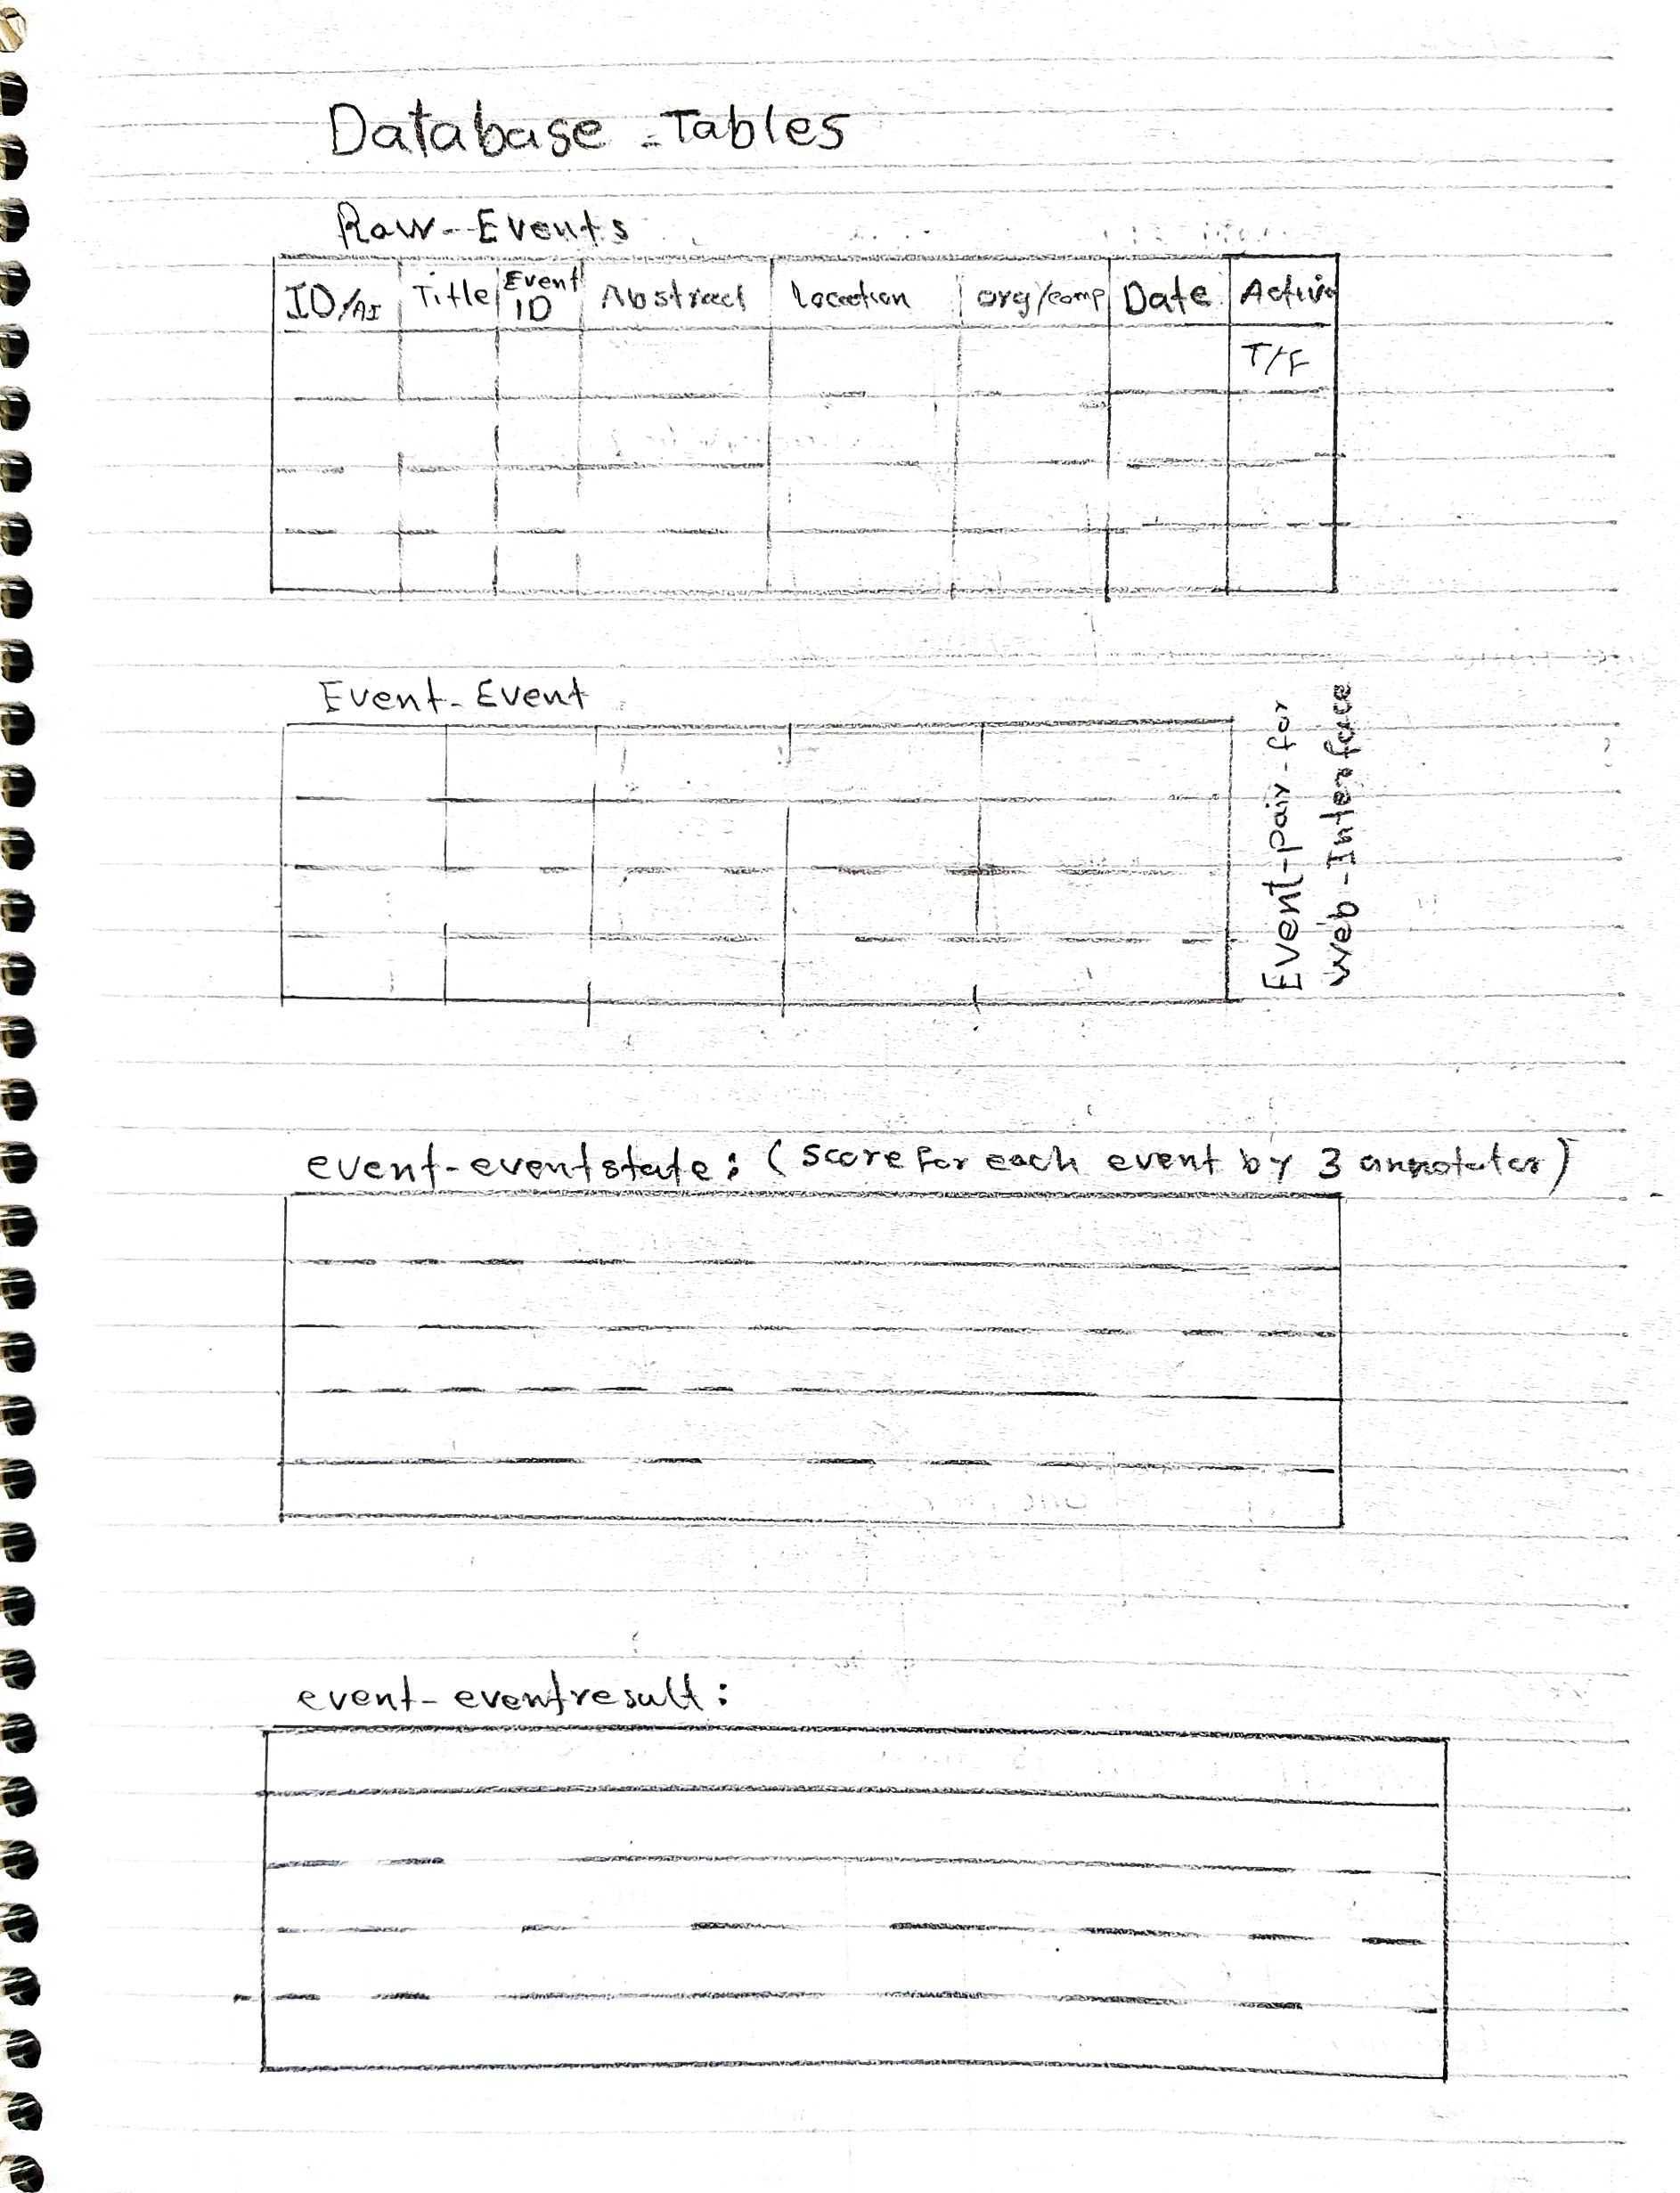 Database - Tables
Raw - Events
ID/AI Title Event ID Abstract Location org/comp Date Active
T/F
Event - Event
Event - Pair - for
Web - Interface
event - eventstate : ( Score for each event by 3 annotator )
event - eventresult :